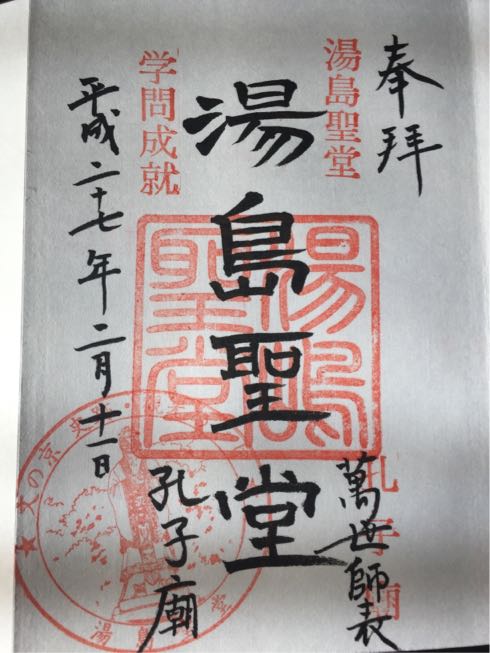 奉拝
湯島聖堂
萬世師表
孔子廟
湯島聖堂
湯島聖堂
学問成就
孔子廟
平成二十七年二月十一日
★文の京 史
湯島聖堂